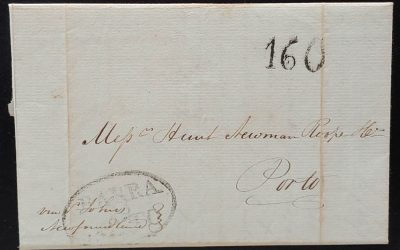 160
Mess.rs Hunt Newman Roope & Co
Porto
BARRA
via St. Johns
Newfoundland